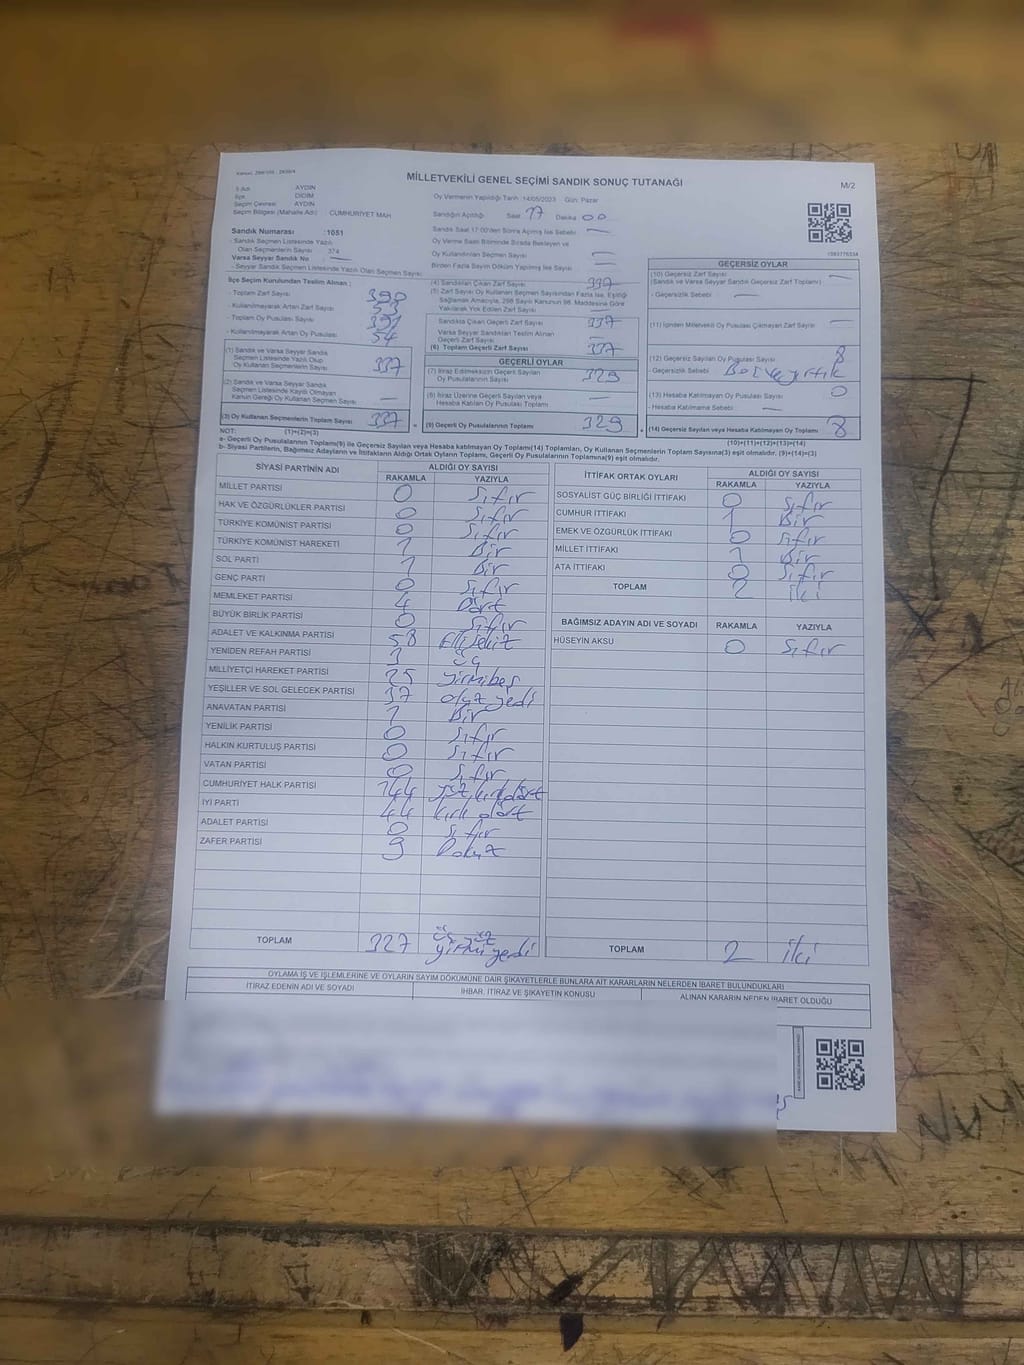 MİLLETVEKİLİ GENEL SEÇİMİ SANDIK SONUÇ TUTANAĞI
M/2
İl Adı : AYDIN
İlçe : DİDİM
Seçim Çevresi : AYDIN
Seçim Bölgesi (Mahalle Adı) : CUMHURİYET MAH
Oy Vermenin Yapıldığı Tarih :14/05/2023 Gün: Pazar
Sandığın Açıldığı Saat 17 Dakika 00
Sandık Saat 17:00'den Sonra Açılmış İse Sebebi : —
Oy Verme Saati Bitiminde Sırada Bekleyen ve
Oy Kullandırılan Seçmen Sayısı —
Birden Fazla Sayım Döküm Yapılmış İse Sayısı —
Sandık Numarası :1051
- Sandık Seçmen Listesinde Yazılı
Olan Seçmenlerin Sayısı 374
Varsa Seyyar Sandık No : —
- Seyyar Sandık Seçmen Listesinde Yazılı Olan Seçmen Sayısı
İlçe Seçim Kurulundan Teslim Alınan ;
- Toplam Zarf Sayısı 390
- Kullanılmayarak Artan Zarf Sayısı 53
- Toplam Oy Pusulası Sayısı 391
- Kullanılmayarak Artan Oy Pusulası 54
(1) Sandık ve Varsa Seyyar Sandık
Seçmen Listesinde Yazılı Olup
Oy Kullanan Seçmenlerin Sayısı 337
(2) Sandık ve Varsa Seyyar Sandık
Seçmen Listesinde Kayıtlı Olmayan
Kanun Gereği Oy Kullanan Seçmen Sayısı —
(3) Oy Kullanan Seçmenlerin Toplam Sayısı 337
(1)+(2)=(3)
(4) Sandıktan Çıkan Zarf Sayısı 337
(5) Zarf Sayısı Oy Kullanan Seçmen Sayısından Fazla İse, Eşitliği
Sağlamak Amacıyla, 298 Sayılı Kanunun 98. Maddesine Göre
Yakılarak Yok Edilen Zarf Sayısı —
Sandıkta Çıkan Geçerli Zarf Sayısı 337
Varsa Seyyar Sandıktan Teslim Alınan
Geçerli Zarf Sayısı —
(6) Toplam Geçerli Zarf Sayısı 337
GEÇERLİ OYLAR
(7) İtiraz Edilmeksizin Geçerli Sayılan
Oy Pusulalarının Sayısı 329
(8) İtiraz Üzerine Geçerli Sayılan veya
Hesaba Katılan Oy Pusulaları Toplamı —
(9) Geçerli Oy Pusulalarının Toplamı 329
GEÇERSİZ OYLAR
(10) Geçersiz Zarf Sayısı —
(Sandık ve Varsa Seyyar Sandık Geçersiz Zarf Toplamı)
- Geçersizlik Sebebi —
(11) İçinden Milletvekili Oy Pusulası Çıkmayan Zarf Sayısı —
(12) Geçersiz Sayılan Oy Pusulası Sayısı 8
- Geçersizlik Sebebi
(13) Hesaba Katılmayan Oy Pusulası Sayısı 0
- Hesaba Katılmama Sebebi —
(14) Geçersiz Sayılan veya Hesaba Katılmayan Oy Toplamı 8
(10)+(11)+(12)+(13)=(14)
NOT:
a- Geçerli Oy Pusulalarının Toplamı(9) ile Geçersiz Sayılan veya Hesaba katılmayan Oy Toplamı(14) Toplamları, Oy Kullanan Seçmenlerin Toplam Sayısına(3) eşit olmalıdır. (9)+(14)=(3)
b- Siyasi Partilerin, Bağımsız Adayların ve İttifakların Aldığı Ortak Oyların Toplamı, Geçerli Oy Pusulalarının Toplamına(9) eşit olmalıdır.
SİYASİ PARTİNİN ADI ALDIĞI OY SAYISI
RAKAMLA YAZIYLA
MİLLET PARTİSİ 0 Sıfır
HAK VE ÖZGÜRLÜKLER PARTİSİ 0 Sıfır
TÜRKİYE KOMÜNİST PARTİSİ 0 Sıfır
TÜRKİYE KOMÜNİST HAREKETİ 1 Bir
SOL PARTİ 1 Bir
GENÇ PARTİ 0 Sıfır
MEMLEKET PARTİSİ 4 Dört
BÜYÜK BİRLİK PARTİSİ 0 Sıfır
ADALET VE KALKINMA PARTİSİ 58 Ellisekiz
YENİDEN REFAH PARTİSİ 3 Üç
MİLLİYETÇİ HAREKET PARTİSİ 25 yirmibeş
YEŞİLLER VE SOL GELECEK PARTİSİ 37 otuz yedi
ANAVATAN PARTİSİ 1 Bir
YENİLİK PARTİSİ 0 Sıfır
HALKIN KURTULUŞ PARTİSİ 0 Sıfır
VATAN PARTİSİ 0 Sıfır
CUMHURİYET HALK PARTİSİ 144 yüz kırkdört
İYİ PARTİ 44 kırk dört
ADALET PARTİSİ 0 Sıfır
ZAFER PARTİSİ 9 Dokuz
TOPLAM 327 üç yüz yirmi yedi
İTTİFAK ORTAK OYLARI ALDIĞI OY SAYISI
RAKAMLA YAZIYLA
SOSYALİST GÜÇ BİRLİĞİ İTTİFAKI 0 Sıfır
CUMHUR İTTİFAKI 1 Bir
EMEK VE ÖZGÜRLÜK İTTİFAKI 0 Sıfır
MİLLET İTTİFAKI 1 Bir
ATA İTTİFAKI 0 Sıfır
TOPLAM 2 iki
BAĞIMSIZ ADAYIN ADI VE SOYADI RAKAMLA YAZIYLA
HÜSEYİN AKSU 0 Sıfır
TOPLAM 2 iki
OYLAMA İŞ VE İŞLEMLERİNE VE OYLARIN SAYIM DÖKÜMÜNE DAİR ŞİKAYETLERLE BUNLARA AİT KARARLARIN NELERDEN İBARET BULUNDUKLARI
İTİRAZ EDENİN ADI VE SOYADI İHBAR, İTİRAZ VE ŞİKAYETİN KONUSU ALINAN KARARIN NEDEN İBARET OLDUĞU